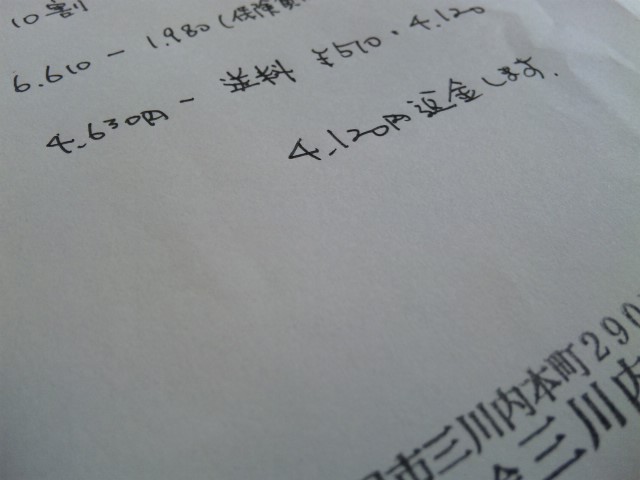 10割
6.610 - 1.980 (保険
4.630円 - 送料 ¥510・4.120
4.120円返金します.
市三川内本町290
三川内